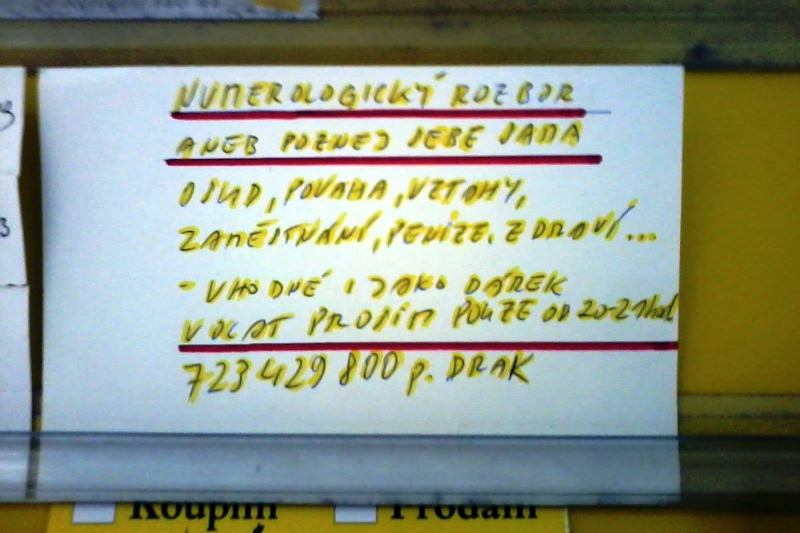 NUMEROLOGICKÝ ROZBOR
ANEB POZNEJ SEBE SAMA
OSUD, POVAHA, VZTAHY,
ZAMĚSTNÁNÍ, PENÍZE, ZDRAVÍ...
- VHODNÉ I JAKO DÁREK
VOLAT PROSÍM POUZE OD 20-21hod
723 429 800 p. DRAK
Koupím Prodám